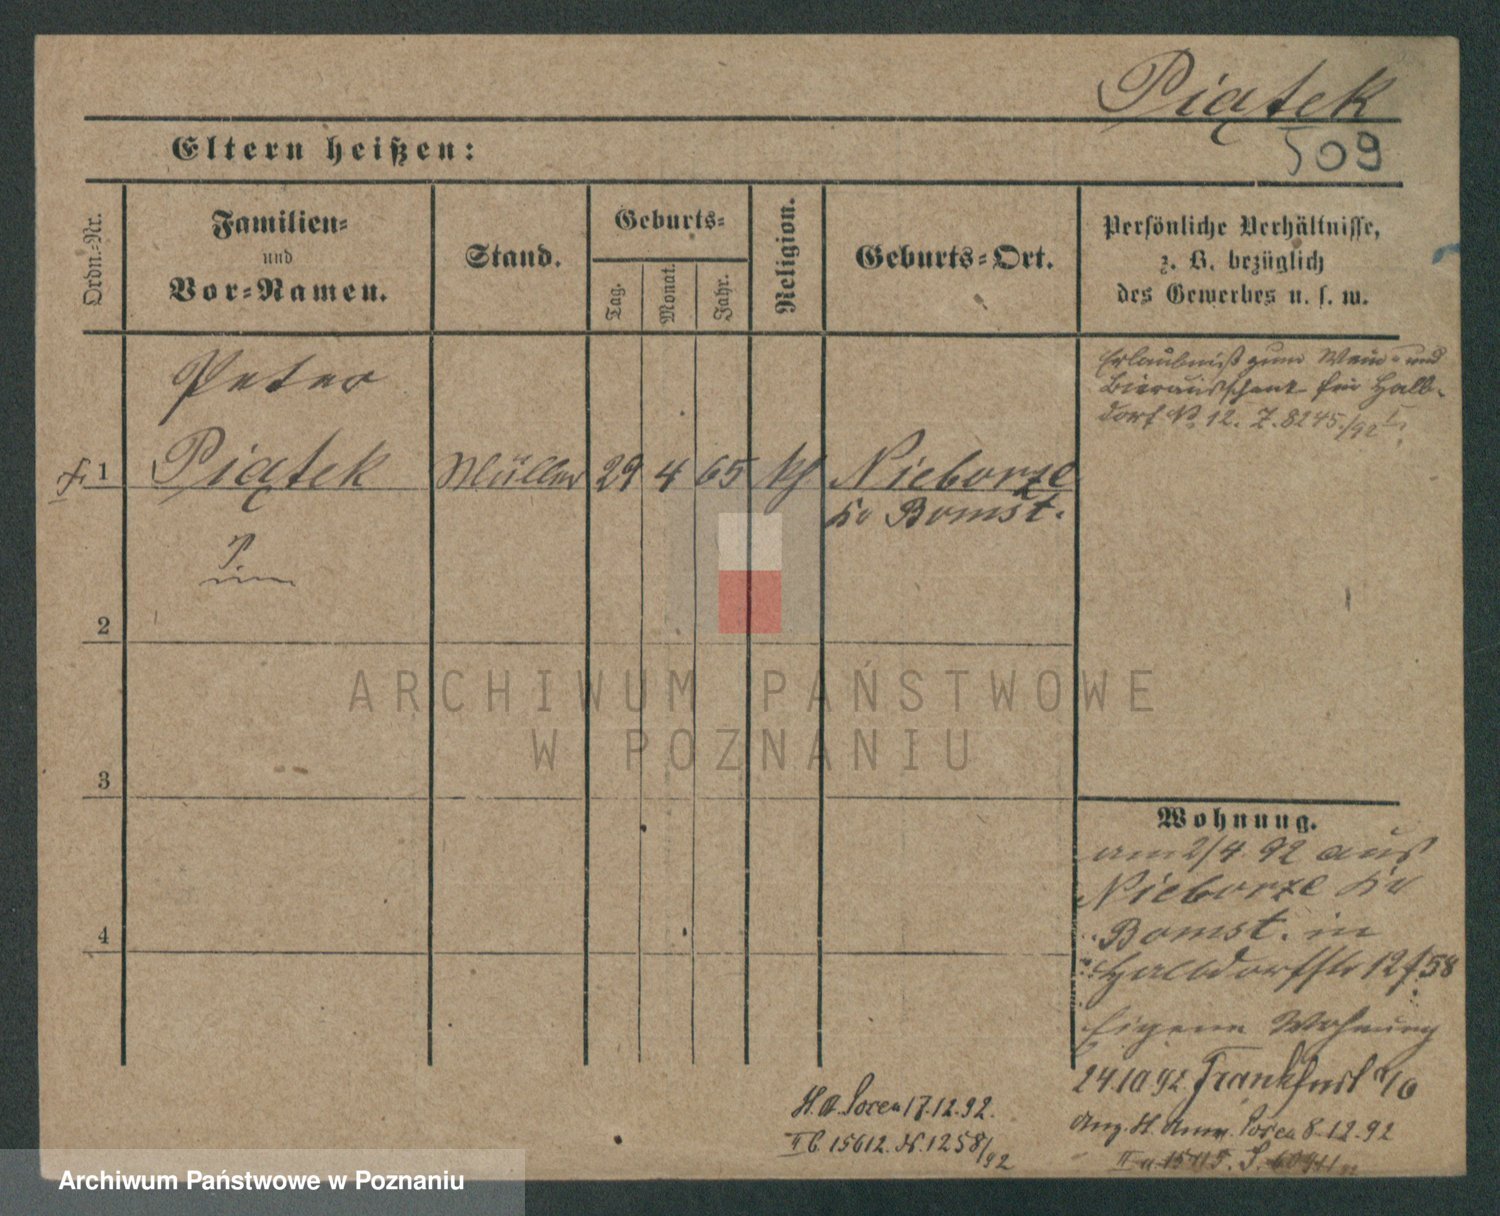 Piątek
509
Eltern heißen:
Ordn.-Nr.
Familien-
und
Vor-Namen.
Stand.
Geburts-
Tag.
Monat.
Jahr.
Religion.
Geburts-Ort.
Persönliche Verhältnisse,
z. B. bezüglich
des Gewerbes u. s. w.
Peter
1 Piątek Müller 29 4 65 kh Nieborze
Kr Bomst.
Erlaubniß zum Wein- und
Bierausschank für Halb-
dorf No 12. Z. 8245/92
2
3
4
ARCHIWUM PAŃSTWOWE
W POZNANIU
Wohnung.
am 2/4 92 aus
Nieborze Kr
Bomst. in
Halbdorfstr 12 f. 58
Eigene Wohnung
24.10 92 Frankfurt a/O
Ang. H. Anm. Posen 8.12.92
H. A. Posen 17.12.92.
II C. 15612. N. 1258/92
Archiwum Państwowe w Poznaniu